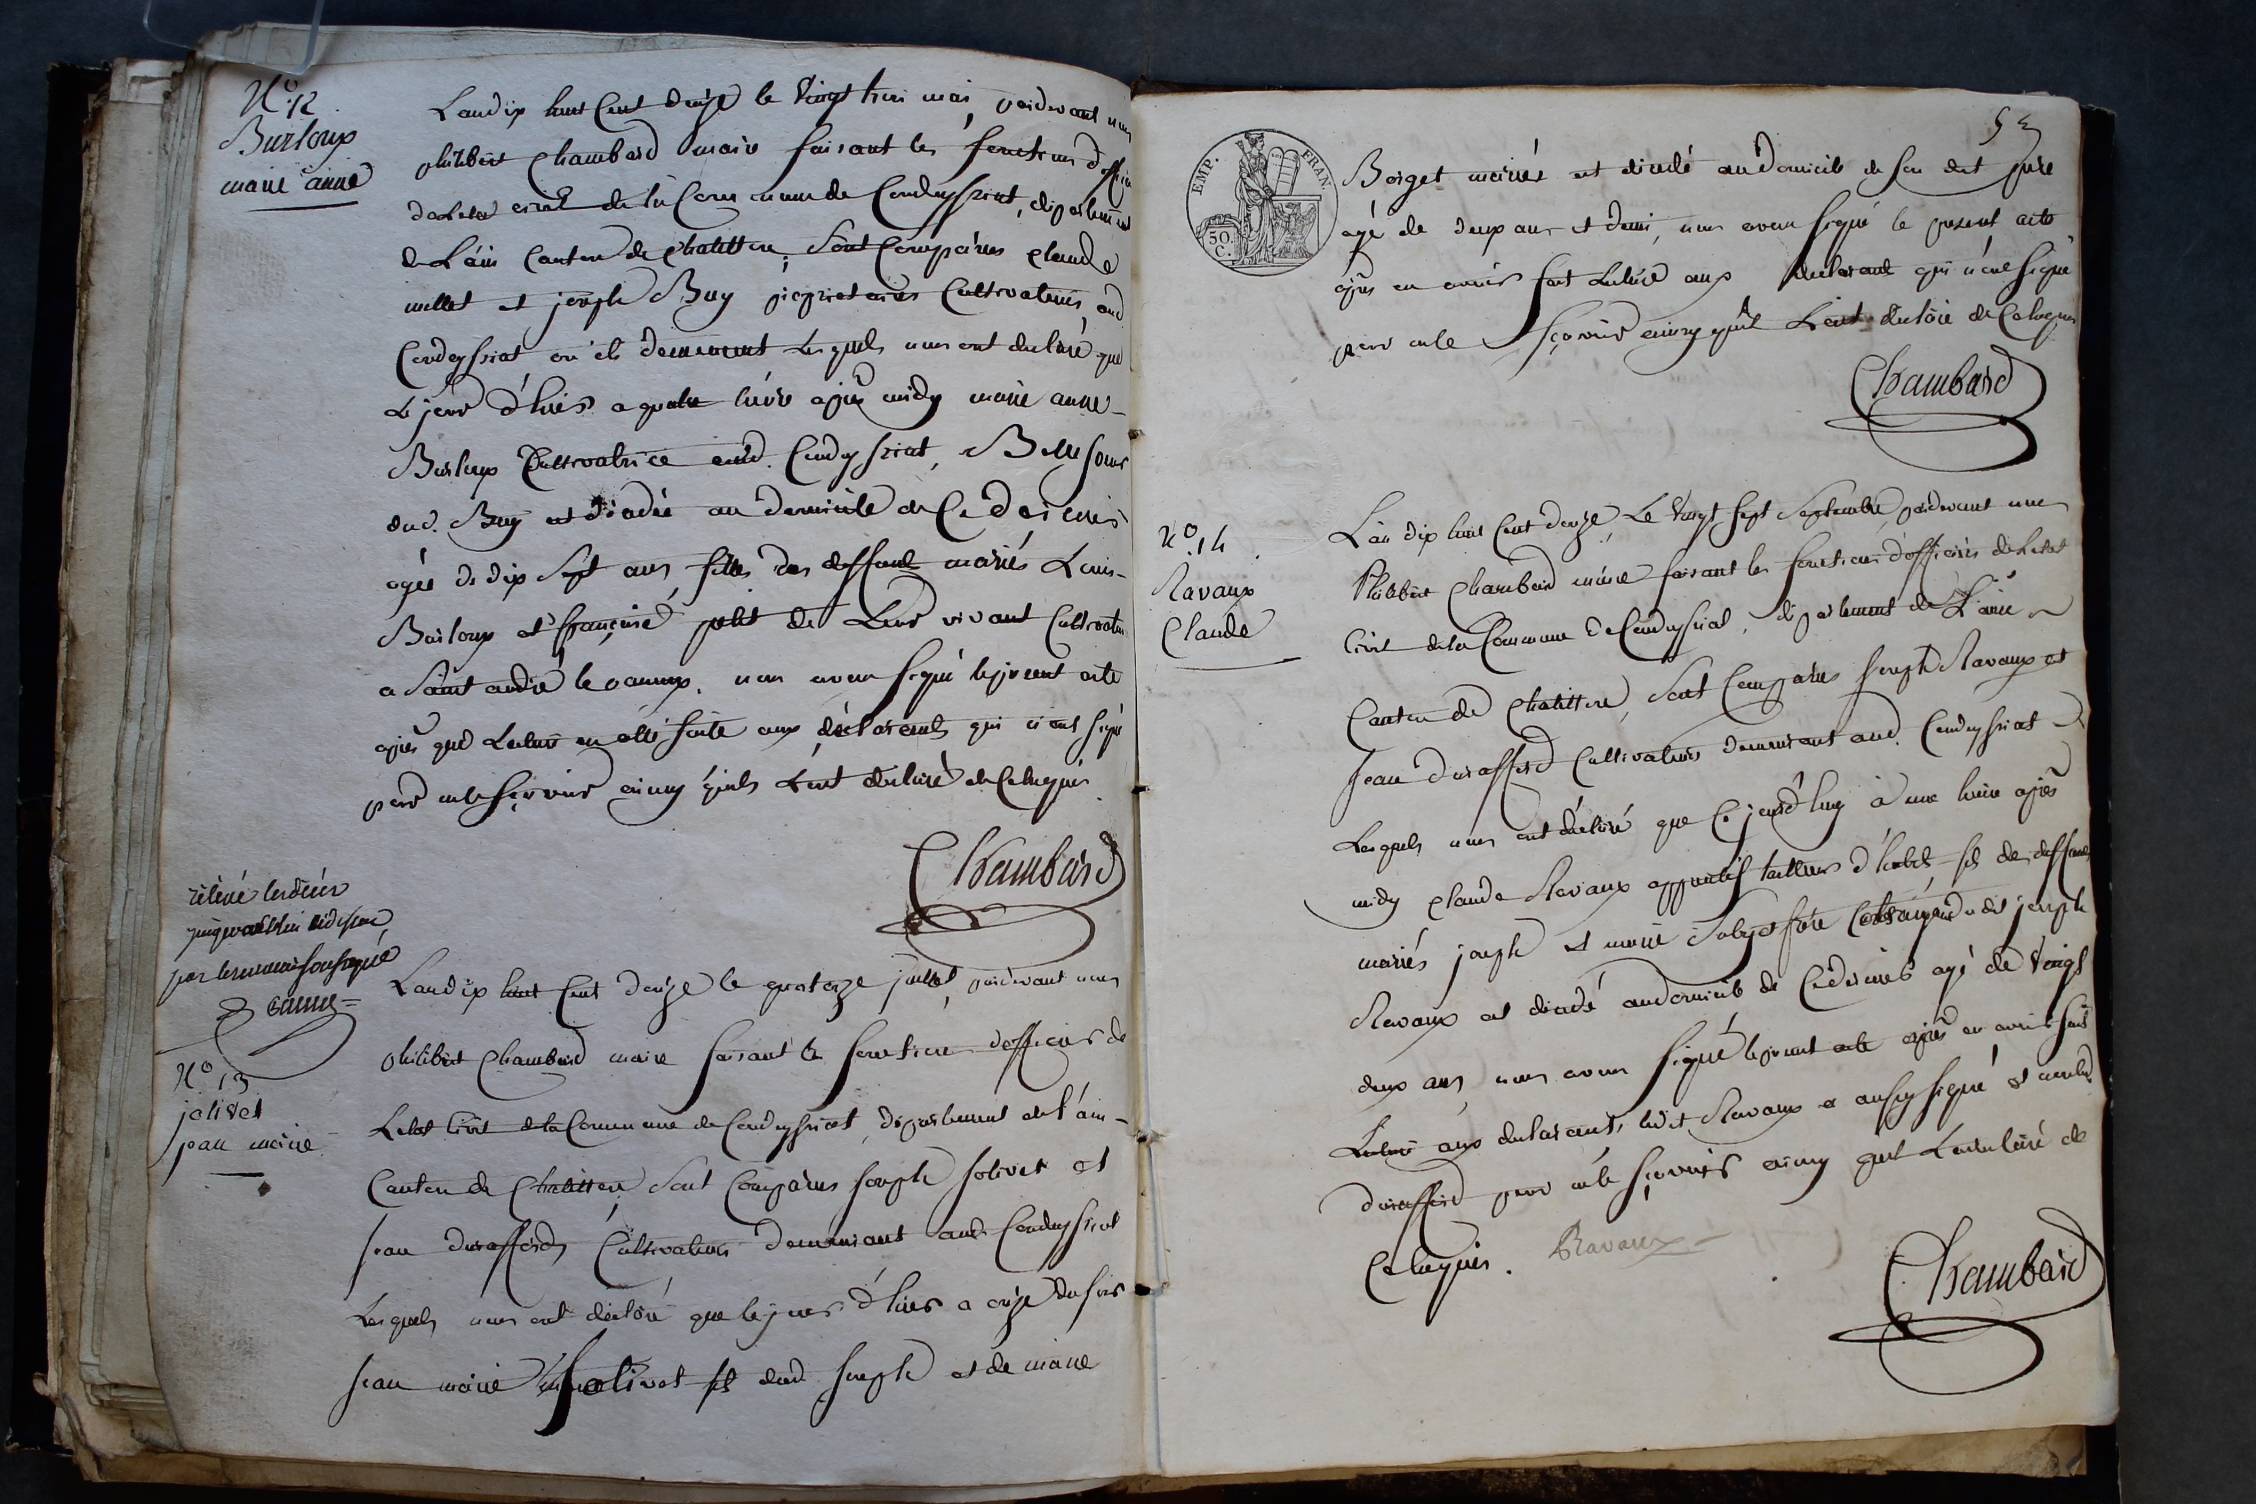 N.° 12
Burloup
marie anne
Lan dix huit Cent douze le vingt trois mai, pardevant nous
philibert Chambard maire faisant les fonctions d'officier
de Letat civil de la Commune de Condeyssiat, département
de L'ain Canton de Chatillon, Sont Comparus Claude
millet et joseph Buy propriétaires Cultivateurs aud.
Condeyssiat où ils demeurent Lesquels nous ont declaré que
Le jour d'hier a quatre heure après midy marie anne
Burloup Cultivatrice aud. Condeyssiat, Belle soeur
dud. Buy est décedée au domicile de Ce dernier
agée de dix Sept ans, fille des deffunt mariés Louis
Burloup et françoise petit de Leur vivant Cultivateurs
a Saint andré le panoux. nous avons signé le présent acte
après que Lecture en a été faite aux déclarants qui n'ont signé
pour ne le sçavoir ainsy qu'ils L'ont declaré de Ce Requis.
Chambard
rélevé les décès
par le receveur soussigné
N.° 13
jolivet
jean marie
Lan dix huit Cent douze le quatorze juillet, pardevant nous
philibert Chambard maire faisant les fonctions d'officier de
Letat Civil de la Commune de Condeyssiat, département de l'ain
Canton de Chatillon, Sont Comparus Joseph Jolivet et
Jean durafford, Cultivateurs demeurant aud. Condeyssiat
Lesquels nous ont déclaré que le jour d'hier a onze du soir
Jean marie Jolivet fils dud. Joseph et de marie
53
EMP. FRAN.
50 C.
Borget mariés est décédé au domicile de son dit père
agé de deux ans et demi, nous avons signé le présent acte
après en avoir fait Lecture aux declarant qui n'ont signé
pour ne le sçavoir ainsy qu'ils L'ont declaré de Ce Requis
Chambard
N.° 14
Ravaux
Claude
L'an dix huit Cent douze, Le vingt sept Septembre, pardevant nous
Philibert Chambard maire faisant les fonctions d'officier de Letat
Civil de la Commune de Condeyssiat, département de L'ain
Canton de Chatillon, Sont Comparus Joseph Ravaux et
Jean durafford Cultivateurs demeurant aud. Condeyssiat
Lesquels nous ont déclaré que Ce jourd'huy à une heure après
midy Claude Ravaux apprentif tailleur d'habit fils des deffunts
mariés joseph et marie Joly et frère dudit joseph
Ravaux est décedé au domicile de Ce dernier agé de vingt
deux ans, nous avons signé le présent acte après en avoir fait
Lecture aux declarants, ledit Ravaux a aussy signé et non led.
durafford pour ne le sçavoir ainsy quil L'a declaré de
Ce Requis.
Ravaux
Chambard